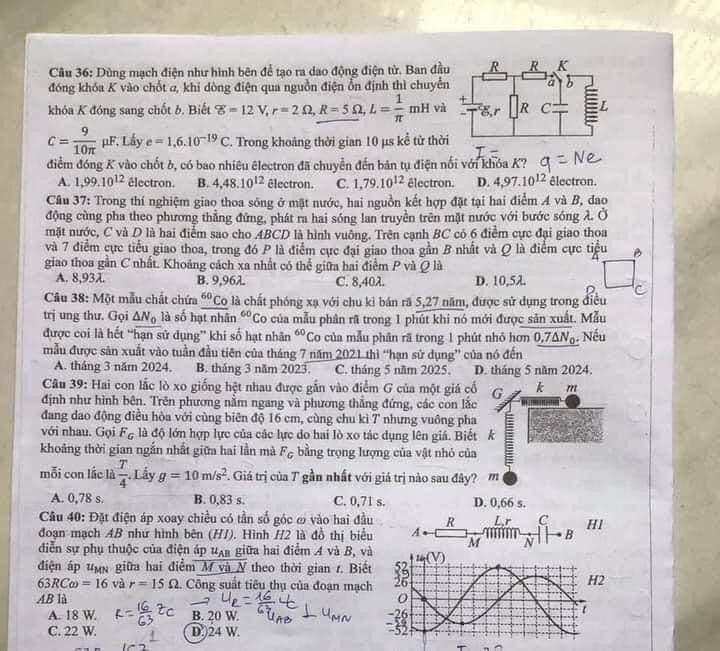 Câu 36: Dùng mạch điện như hình bên để tạo ra dao động điện từ. Ban đầu
đóng khóa K vào chốt a, khi dòng điện qua nguồn điện ổn định thì chuyển
khóa K đóng sang chốt b. Biết ℰ = 12 V, r = 2 Ω, R = 5 Ω, L = 1/π mH và
C = 9/10π μF. Lấy e = 1,6.10⁻¹⁹ C. Trong khoảng thời gian 10 μs kể từ thời
điểm đóng K vào chốt b, có bao nhiêu êlectron đã chuyển đến bản tụ điện nối với khóa K?
A. 1,99.10¹² êlectron. B. 4,48.10¹² êlectron. C. 1,79.10¹² êlectron. D. 4,97.10¹² êlectron.
R R K
a b
ℰ,r R C L
I =
q = Ne
Câu 37: Trong thí nghiệm giao thoa sóng ở mặt nước, hai nguồn kết hợp đặt tại hai điểm A và B, dao
động cùng pha theo phương thẳng đứng, phát ra hai sóng lan truyền trên mặt nước với bước sóng λ. Ở
mặt nước, C và D là hai điểm sao cho ABCD là hình vuông. Trên cạnh BC có 6 điểm cực đại giao thoa
và 7 điểm cực tiểu giao thoa, trong đó P là điểm cực đại giao thoa gần B nhất và Q là điểm cực tiểu
giao thoa gần C nhất. Khoảng cách xa nhất có thể giữa hai điểm P và Q là
A. 8,93λ. B. 9,96λ. C. 8,40λ. D. 10,5λ.
A B
D C
Câu 38: Một mẫu chất chứa ⁶⁰Co là chất phóng xạ với chu kì bán rã 5,27 năm, được sử dụng trong điều
trị ung thư. Gọi ΔN₀ là số hạt nhân ⁶⁰Co của mẫu phân rã trong 1 phút khi nó mới được sản xuất. Mẫu
được coi là hết “hạn sử dụng” khi số hạt nhân ⁶⁰Co của mẫu phân rã trong 1 phút nhỏ hơn 0,7ΔN₀. Nếu
mẫu được sản xuất vào tuần đầu tiên của tháng 7 năm 2021 thì “hạn sử dụng” của nó đến
A. tháng 3 năm 2024. B. tháng 3 năm 2023. C. tháng 5 năm 2025. D. tháng 5 năm 2024.
Câu 39: Hai con lắc lò xo giống hệt nhau được gắn vào điểm G của một giá cố
định như hình bên. Trên phương nằm ngang và phương thẳng đứng, các con lắc
đang dao động điều hòa với cùng biên độ 16 cm, cùng chu kì T nhưng vuông pha
với nhau. Gọi F_G là độ lớn hợp lực của các lực do hai lò xo tác dụng lên giá. Biết
khoảng thời gian ngắn nhất giữa hai lần mà F_G bằng trọng lượng của vật nhỏ của
mỗi con lắc là T/4. Lấy g = 10 m/s². Giá trị của T gần nhất với giá trị nào sau đây?
A. 0,78 s. B. 0,83 s. C. 0,71 s. D. 0,66 s.
G k m
k
m
Câu 40: Đặt điện áp xoay chiều có tần số góc ω vào hai đầu
đoạn mạch AB như hình bên (H1). Hình H2 là đồ thị biểu
diễn sự phụ thuộc của điện áp u_AB giữa hai điểm A và B, và
điện áp u_MN giữa hai điểm M và N theo thời gian t. Biết
63RCω = 16 và r = 15 Ω. Công suất tiêu thụ của đoạn mạch
AB là
A. 18 W. B. 20 W.
C. 22 W. D. 24 W.
R L,r C H1
A M N B
u(V) H2
52
26
O t
-26
-52
R = 16/63 Zc
u_AB ⊥ u_MN